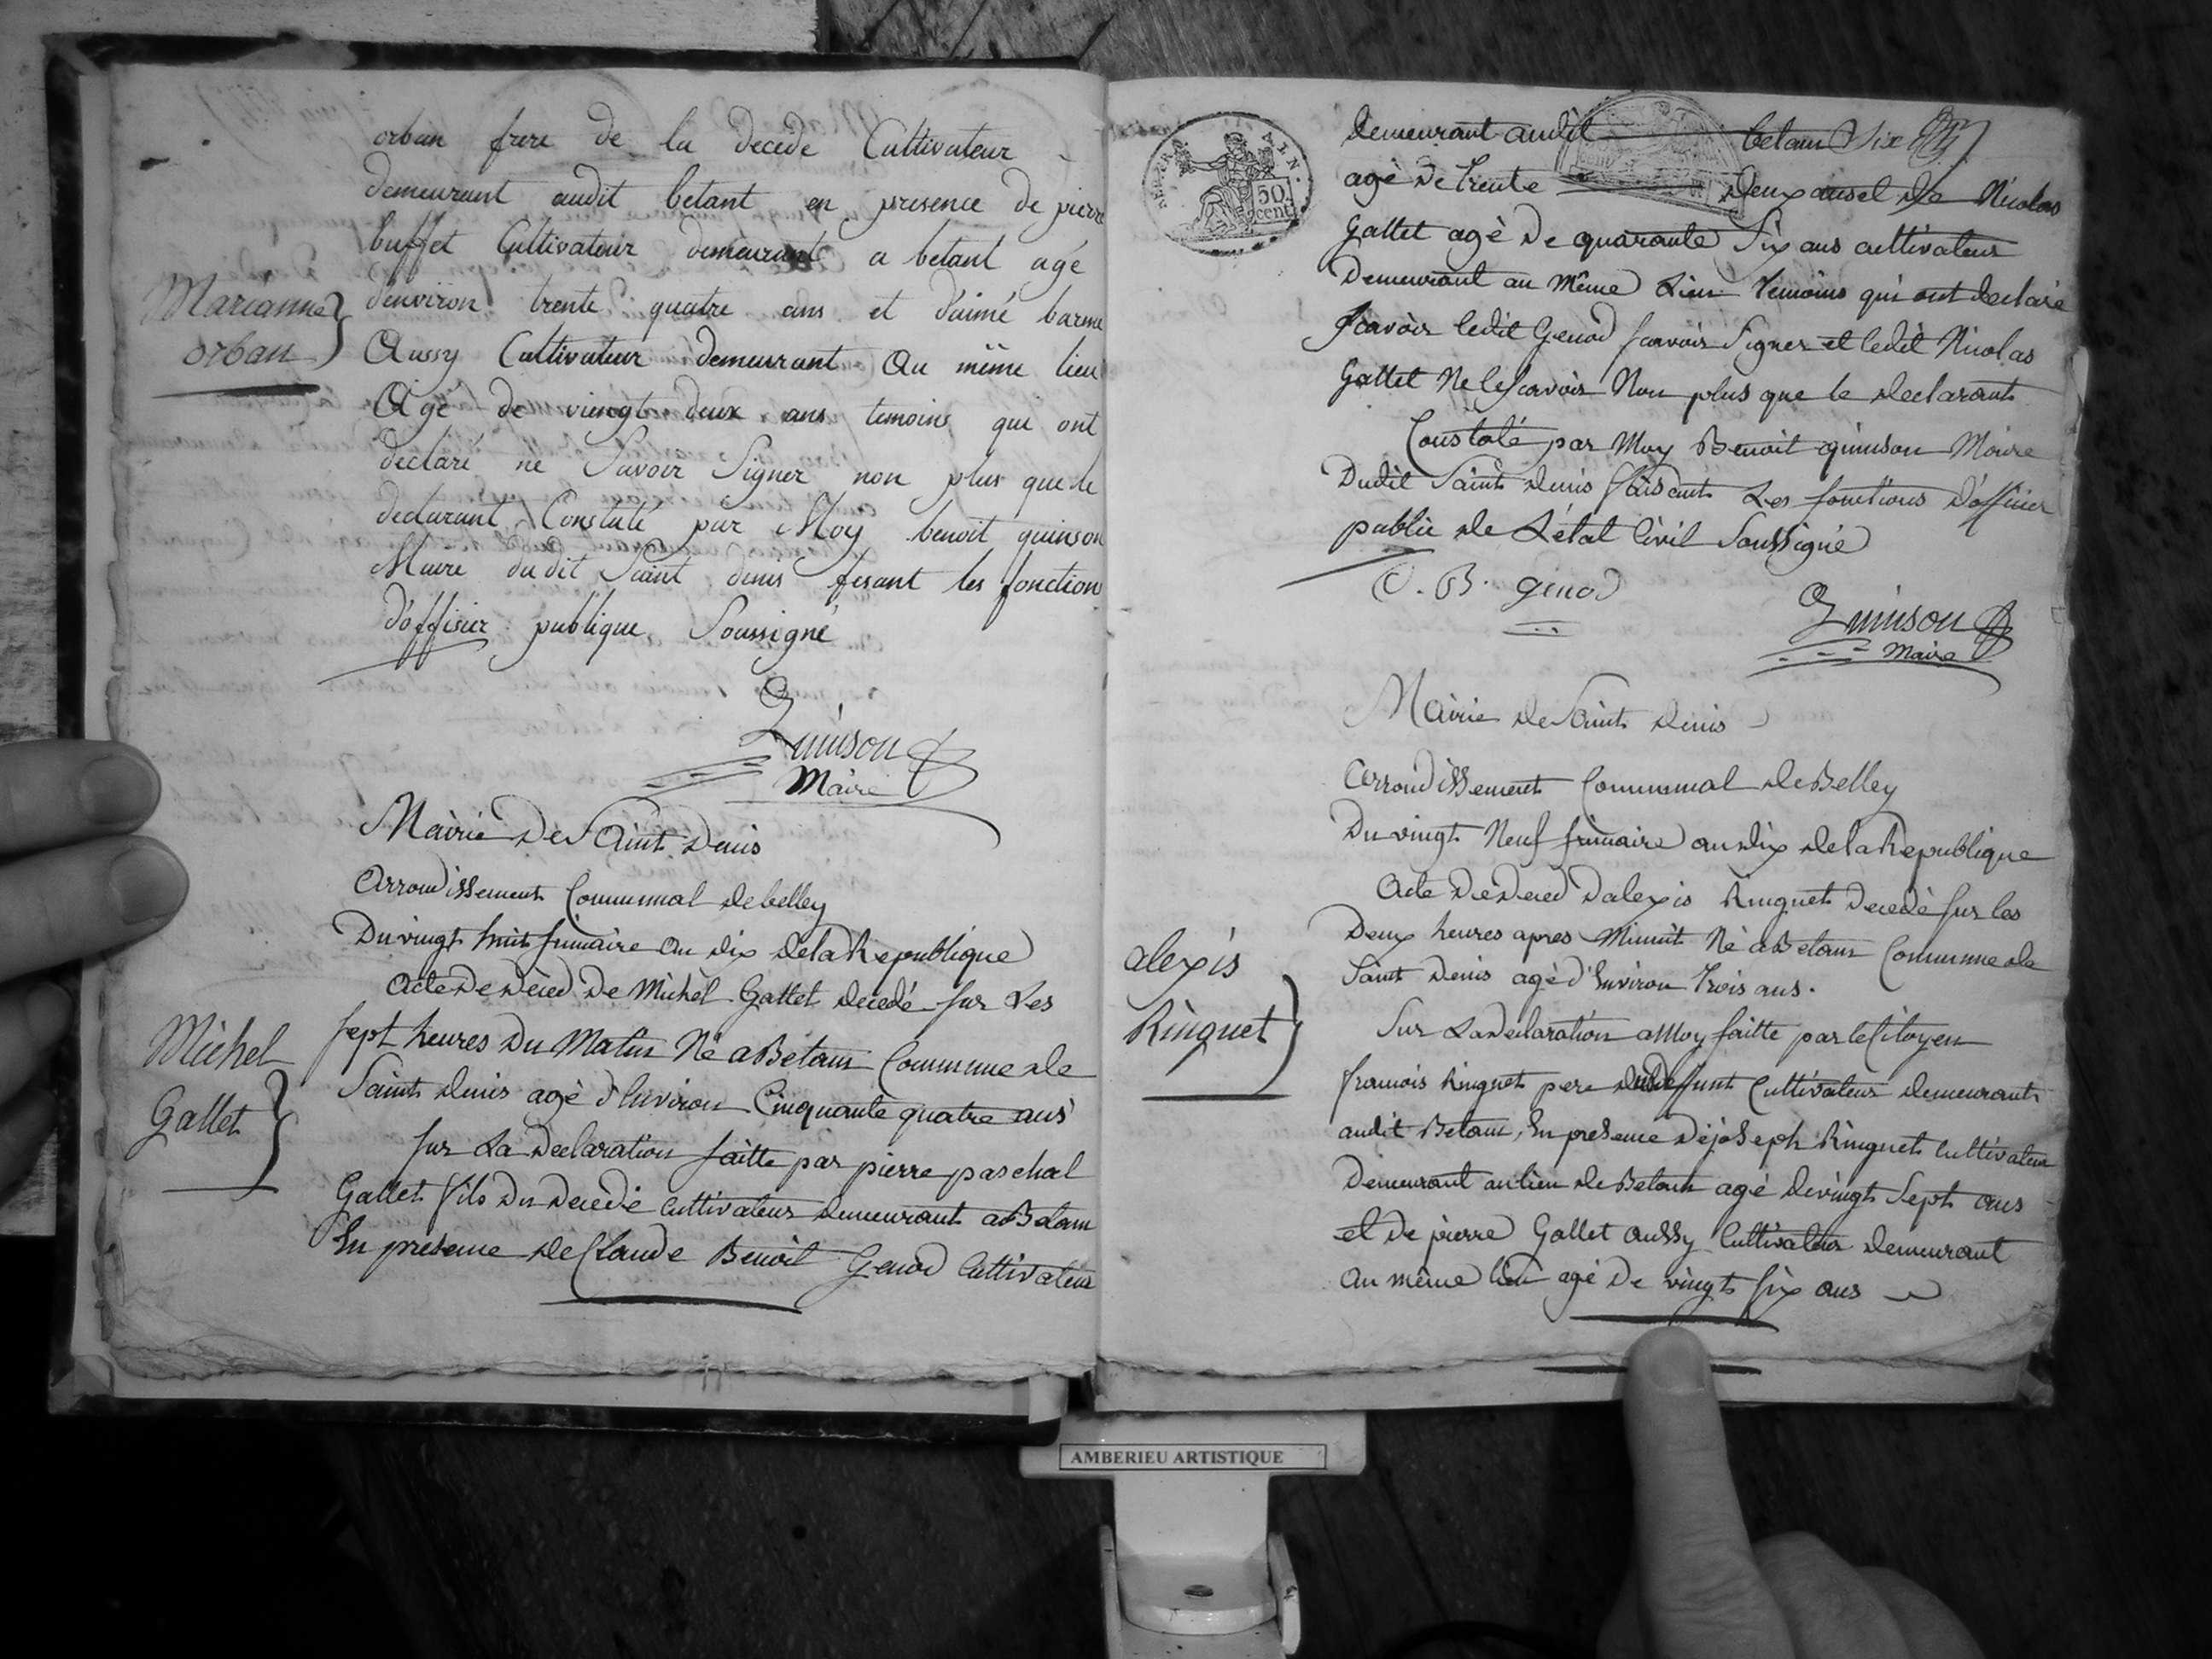 orban frere de la decede Cultivateur
demeurant audit betant en presence de pierre
buffet Cultivateur demeurant a betant agé
d'environ trente quatre ans et d'aimé barme
Marianne
orban
Aussy Cultivateur demeurant Au même lieu
Agé de viengt deux ans temoins qui ont
declaré ne Savoir Signer non plus que le
declarant Constaté par Moy benoit quinson
Maire dudit Saint denis fesant les fonction
d'offisier publique Soussigné
Quinson
Maire
Mairie De Saint Denis
Arrondissement Communal de belley
Du vingt huit frimaire an dix de la Republique
Acte De Déced De Michel Gallet decedé sur Les
Michel
Gallet
sept heures Du Matin Né a Betam Commune de
Saint denis agé d'Environ Cinquante quatre ans
sur La Declaration faitte par pierre paschal
Gallet fils Du Decedé Cultivateur demeurant a Betam
En presence de Claude Benoit Genod Cultivateur
50
cent
demeurant audit betam Dix
agé De trente deux ans et de Nicolas
Gallet agé De quarante Six ans cultivateur
Demeurant au Même Lieu Temoins qui ont declaré
Scavoir ledit Genod scavoir Signer et ledit Nicolas
Gallet Ne le scavoir Non plus que le declarant
Constaté par Moy Benoit quinson Maire
Dudit Saint denis faisant Les fonctions D'officier
public de L'état Civil Soussigné
C. B. genod
Quinson
Maire
Mairie de Saint denis
Arrondissement Communal de Belley
Du vingt Neuf frimaire an dix de la Republique
Acte De Déced D'alexis Ringuet Decedé sur les
Deux heures apres Minuit Né a Betam Commune de
Saint Denis agé d'Environ trois ans.
alexis
Ringuet
Sur La Declaration a Moy faitte par le Citoyen
francois Ringuet pere dudeffunt Cultivateur demeurant
audit Betam, En presence De joseph Ringuet Cultivateur
Demeurant au lieu de Betam agé de vingt Sept ans
et De pierre Gallet aussy Cultivateur demeurant
au même lieu agé De vingt six ans
AMBERIEU ARTISTIQUE